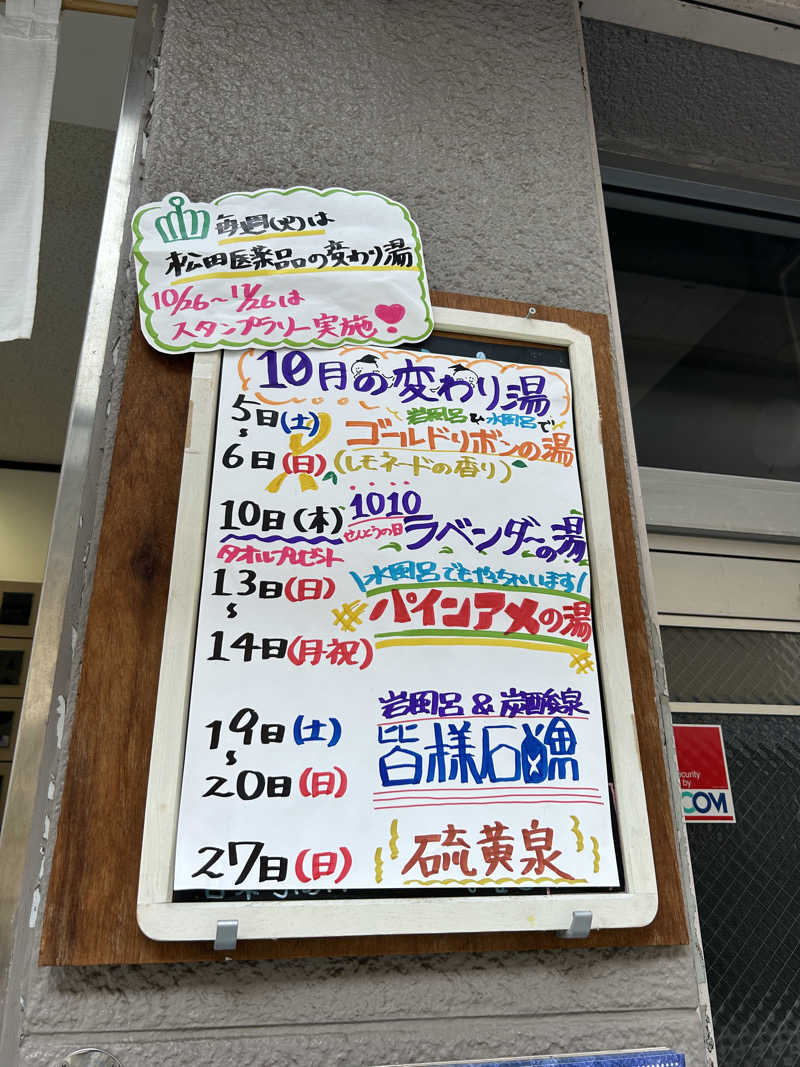 毎週(火)は
松田医薬品の変わり湯
10/26～11/26は
スタンプラリー実施!
10月の変わり湯
5日(土)
～
6日(日)
岩風呂&水風呂で
ゴールドリボンの湯
(レモネードの香り)
10日(木)
タオルプレゼント
1010
せんとうの日
ラベンダーの湯
13日(日)
～
14日(月・祝)
\水風呂でもやっちゃいます/
パインアメの湯
19日(土)
～
20日(日)
岩風呂&炭酸泉
皆様石鹸
27日(日)
硫黄泉
COM